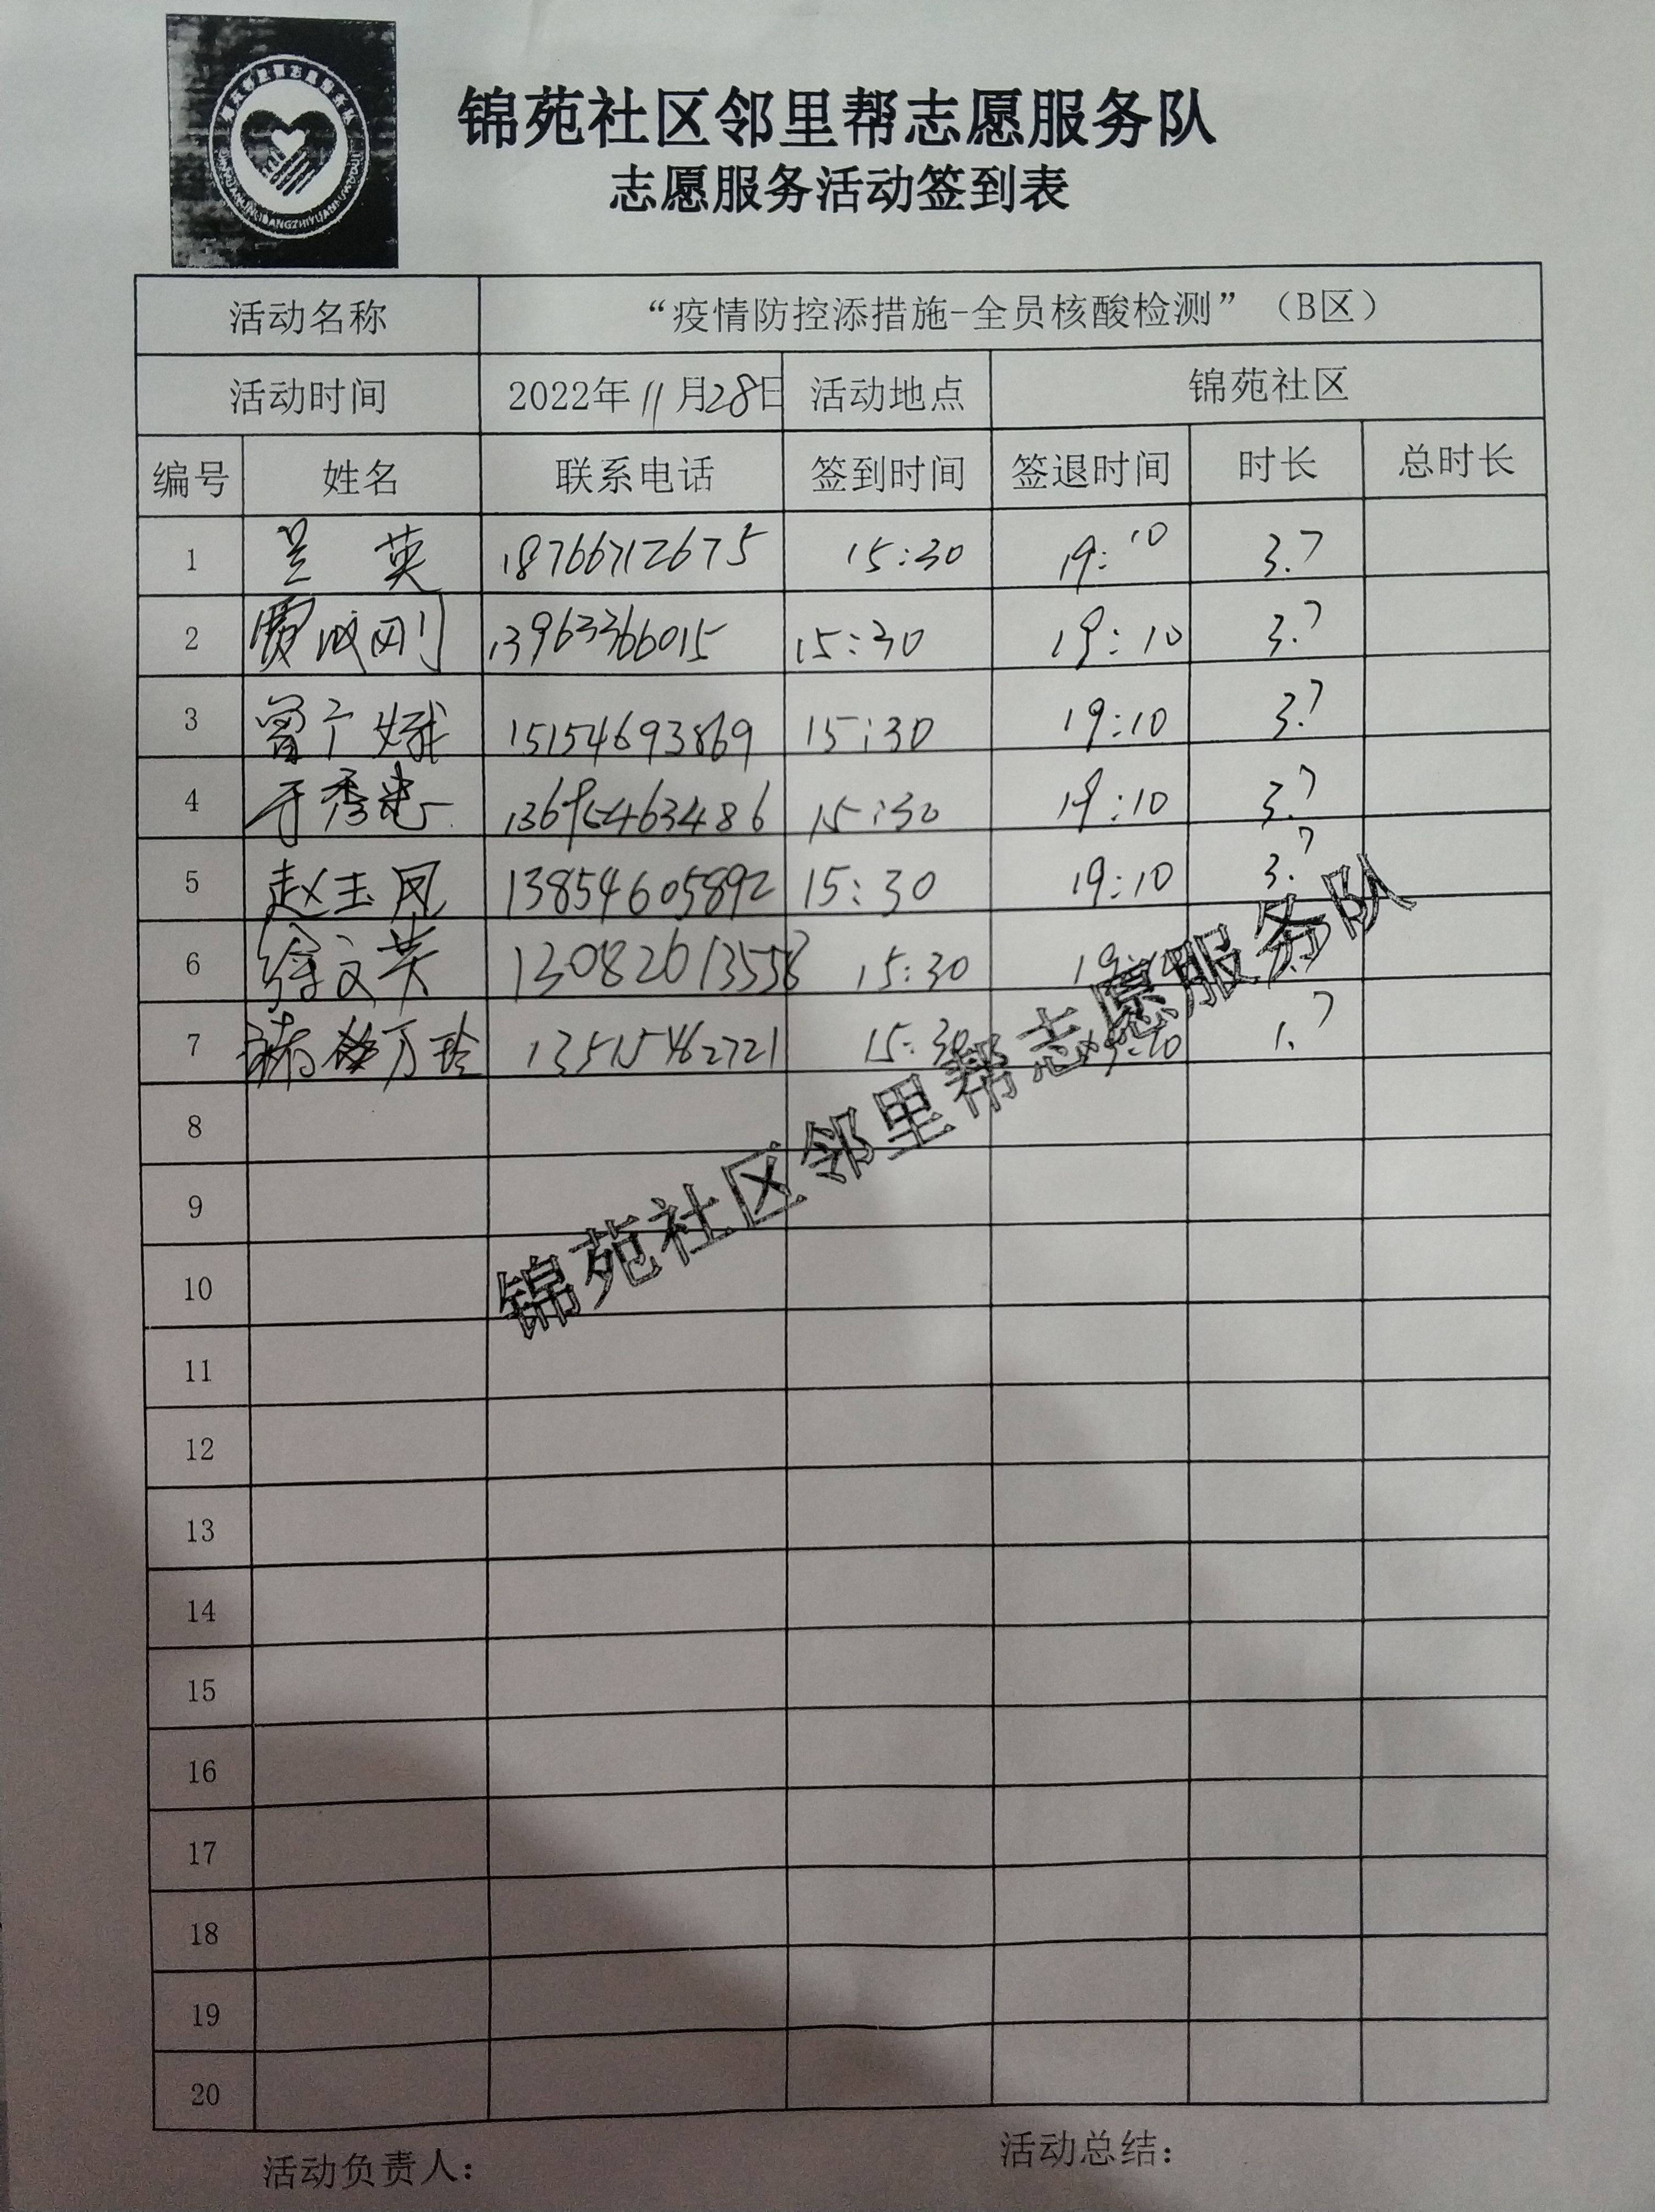 锦苑社区邻里帮志愿服务队
志愿服务活动签到表
活动名称 “疫情防控添措施-全员核酸检测”（B区）
活动时间 2022年11月28日 活动地点 锦苑社区
编号 姓名 联系电话 签到时间 签退时间 时长 总时长
1 吴英 18766712675 15:30 19:10 3.7
2 贾成刚 13963366015 15:30 19:10 3.7
3 曾广娥 15154693869 15:30 19:10 3.7
4 于秀 13695463486 15:30 19:10 3.7
5 赵玉凤 13854605892 15:30 19:10 3.7
6 徐文英 13082613558 15:30
7 万玲 13515462721 15:30 19:10
8
9
10
11
12
13
14
15
16
17
18
19
20
锦苑社区邻里帮志愿服务队
活动负责人： 活动总结：